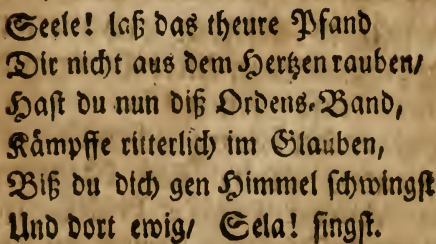 Seele! laß das theure Pfand
Dir nicht aus dem Hertzen rauben/
Hast du nun diß Ordens-Band,
Kämpffe ritterlich im Glauben,
Biß du dich gen Himmel schwingst
Und dort ewig/ Sela! singst.